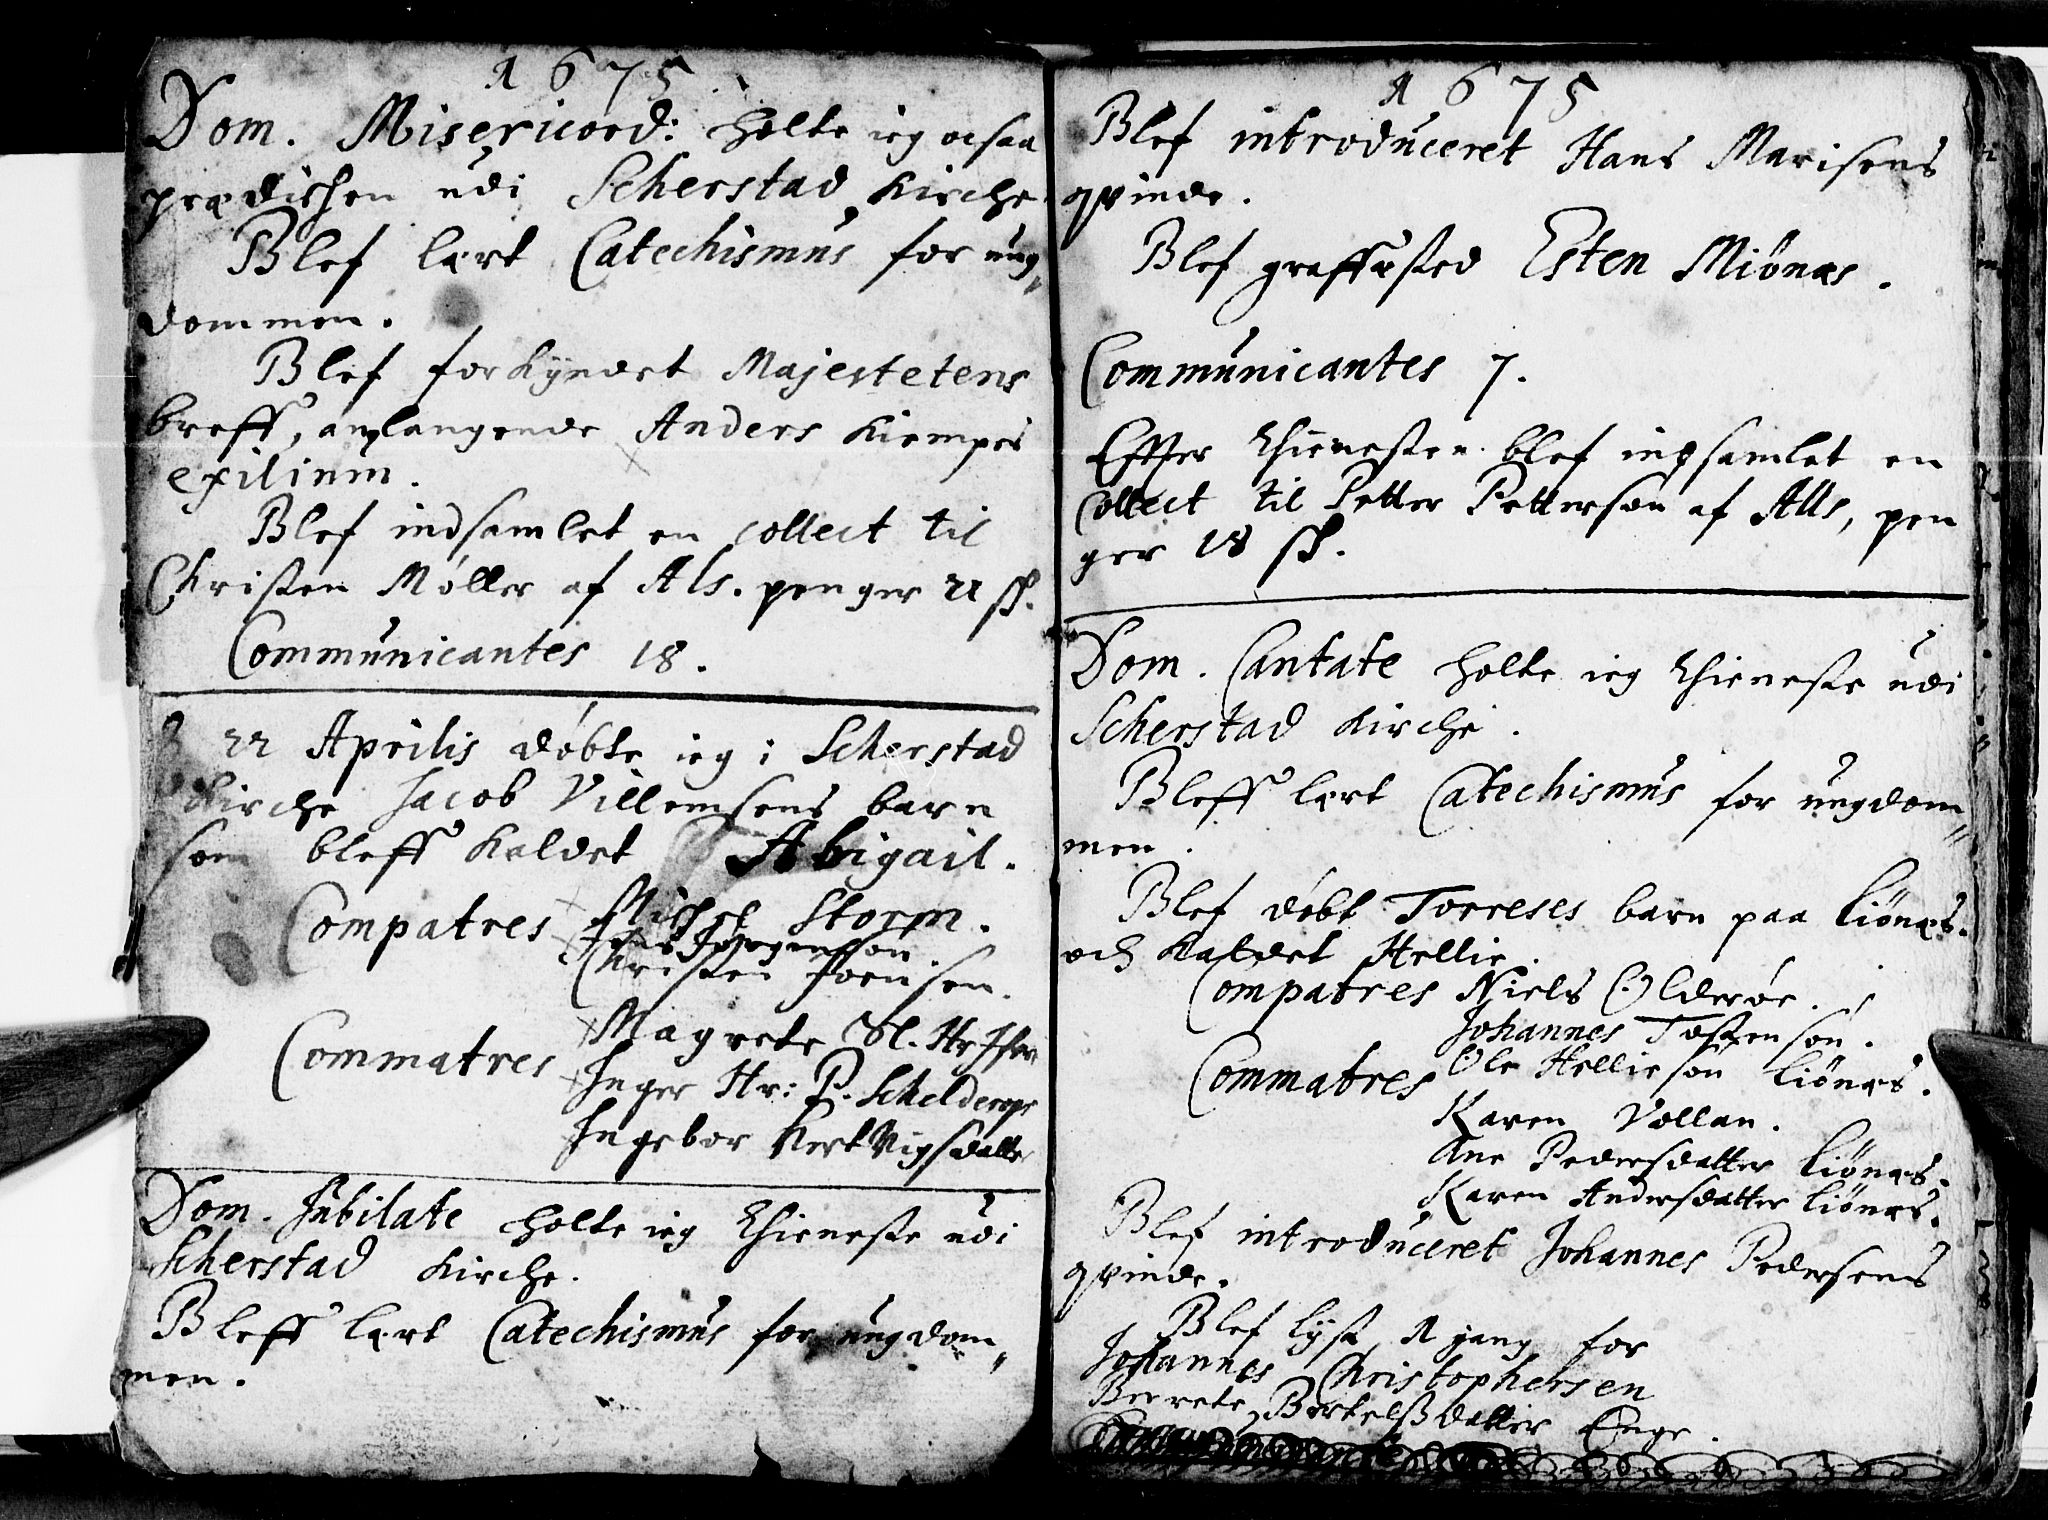 1675
Dom. Misericord: holte ieg ocsaa
prædichen udi Scherstad Kirche.
Blef lært Catechismus for ung„
dommen.
Blef forkyndet Majestetens
breff, anlangende Anders Kiempes
exilium.
Blef indsamlet en collect til
Christen Møller af Als. penger 21 sk.
Communicantes 18.
22 Aprilis døbte ieg i Scherstad
Kirche Jacob Villemsens barn
som bleff kaldet Abigail.
Compatres Michel Storm.
Jens Jørgensøn.
Christen Joensen.
Commatres Magrete Sl. Hr
Inger Hr: P. Schelderops
Ingebor Hertvigsdatter
Dom. Jubilate holte ieg thieneste udi
Scherstad Kirche.
Bleff lært Catechismus for ungdom„
men.
1675
Blef introduceret Hans Marisens
qvinde.
Blef graffæsted Esten Miønæs.
Communicantes 7.
Effter thienesten blef indsamlet en
Collect til Petter Pettersøn af Alls, pen
ger 18 sk.
Dom. Cantate holte ieg thieneste udi
Scherstad Kirche.
Bleff lært Catechismus for ungdom„
men.
Blef døbt Torreses barn paa Liønæs.
och kaldet Hellie.
Compatres Niels Olderøe.
Johannes Tostensøn.
Ole Helliesøn Liønæs.
Commatres
Karen Vollan.
Ane Pedersdatter Liønæs.
Karen Andersdatter Liønæs.
Blef introduceret Johannes Pedersens
qvinde.
Blef lyst 1 gang for
Johannes Christophersen
Berrete Bertelsdatter Enge.